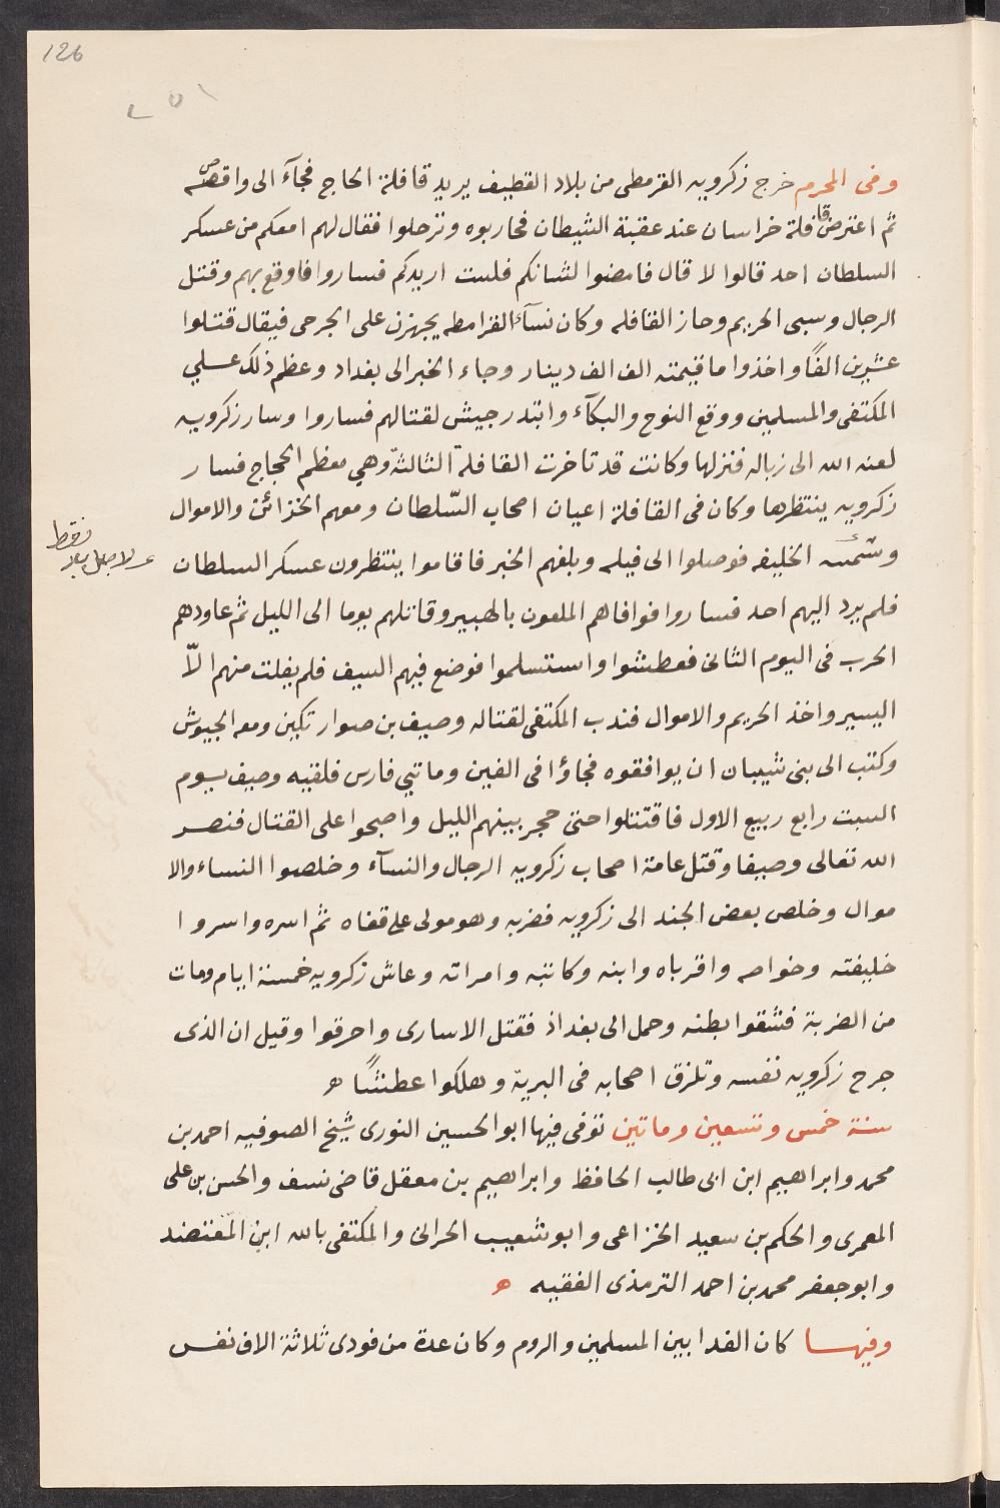 126
٢٥١
وفى المحرم خرج زكرويه القرمطى من بلاد القطيف يريد قافلة الحاج فجآء الى واقصه
ثم اعترض قافلة خراسان عند عقبة الشيطان فحاربوه وترحلوا فقال لهم امعكم من عسكر
السلطان احد قالوا لا قال فامضوا لشانكم فلست اريدكم فساروا فاوقع بهم وقتل
الرجال وسبى الحريم وحاز القافله وكان نسآء القرامطه يجهزن على الجرحى فيقال قتلوا
عشرين الفًا واخذوا ما قيمته الف الف دينار وجاء الخبر الى بغداد وعظم ذلك على
المكتفى والمسلمين ووقع النوح والبكآء وابتدر جيش لقتالهم فساروا وسار زكرويه
لعنه الله الى زباله فنزلها وكانت قد تاخرت القافلة الثالثة وهي معظم الحجاج فسار
زكرويه ينتظرها وكان فى القافلة اعيان اصحاب السّلطان ومعهم الخزائن والاموال
وشمسة الخليفه فوصلوا الى فيله وبلغهم الخبر فاقاموا ينتظرون عسكر السلطان
فلم يرد اليهم احد فساروا فوافاهم الملعون بالهبير وقاتلهم يوما الى الليل ثم عاودهم
الحرب فى اليوم الثانى فعطشوا واستسلموا فوضع فيهم السيف فلم يفلت منهم الّا
اليسير واخذ الحريم والاموال فندب المكتفى لقتاله وصيف بن صوار تكين ومعه الجيوش
وكتب الى بنى شيبان ان يوافقوه فجاؤا فى الفين ومائتي فارس فلقيه وصيف يوم
السبت رابع ربيع الاول فاقتتلوا حتى حجر بينهم الليل واصبحوا على القتال فنصر
الله تعالى وصيفا وقتل عامة اصحاب زكرويه الرجال والنسآء وخلصوا النساء والا
موال وخلص بعض الجند الى زكرويه فضربه وهو مولى على قفاه ثم اسره واسروا
خليفته وخواصه واقرباه وابنه وكاتبه وامراته وعاش زكرويه خمسة ايام ومات
من الضربة فشقوا بطنه وحمل الى بغداذ فقتل الاسارى واحرقوا وقيل ان الذى
جرح زكرويه نفسه وتلزق اصحابه فى البرية وهلكوا عطشًا ه
سنة خمس وتسعين وماتين توفى فيها ابو الحسين النورى شيخ الصوفيه احمد بن
محمد وابراهيم ابن ابى طالب الحافظ وابراهيم بن معقل قاضى نسف والحسن بن على
المعمرى والحكم بن سعيد الخزاعى وابو شعيب الحرانى والمكتفى بالله ابن المعتضد
وابو جعفر محمد بن احمد الترمذى الفقيه ه
وفيها كان الفدا بين المسلمين والروم وكان عدة من فودى ثلاثة الاف نفس